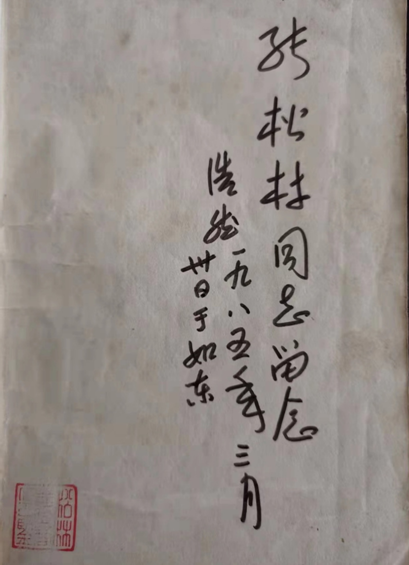 张松林同志留念
浩然一九八五年三月
卅日于如东